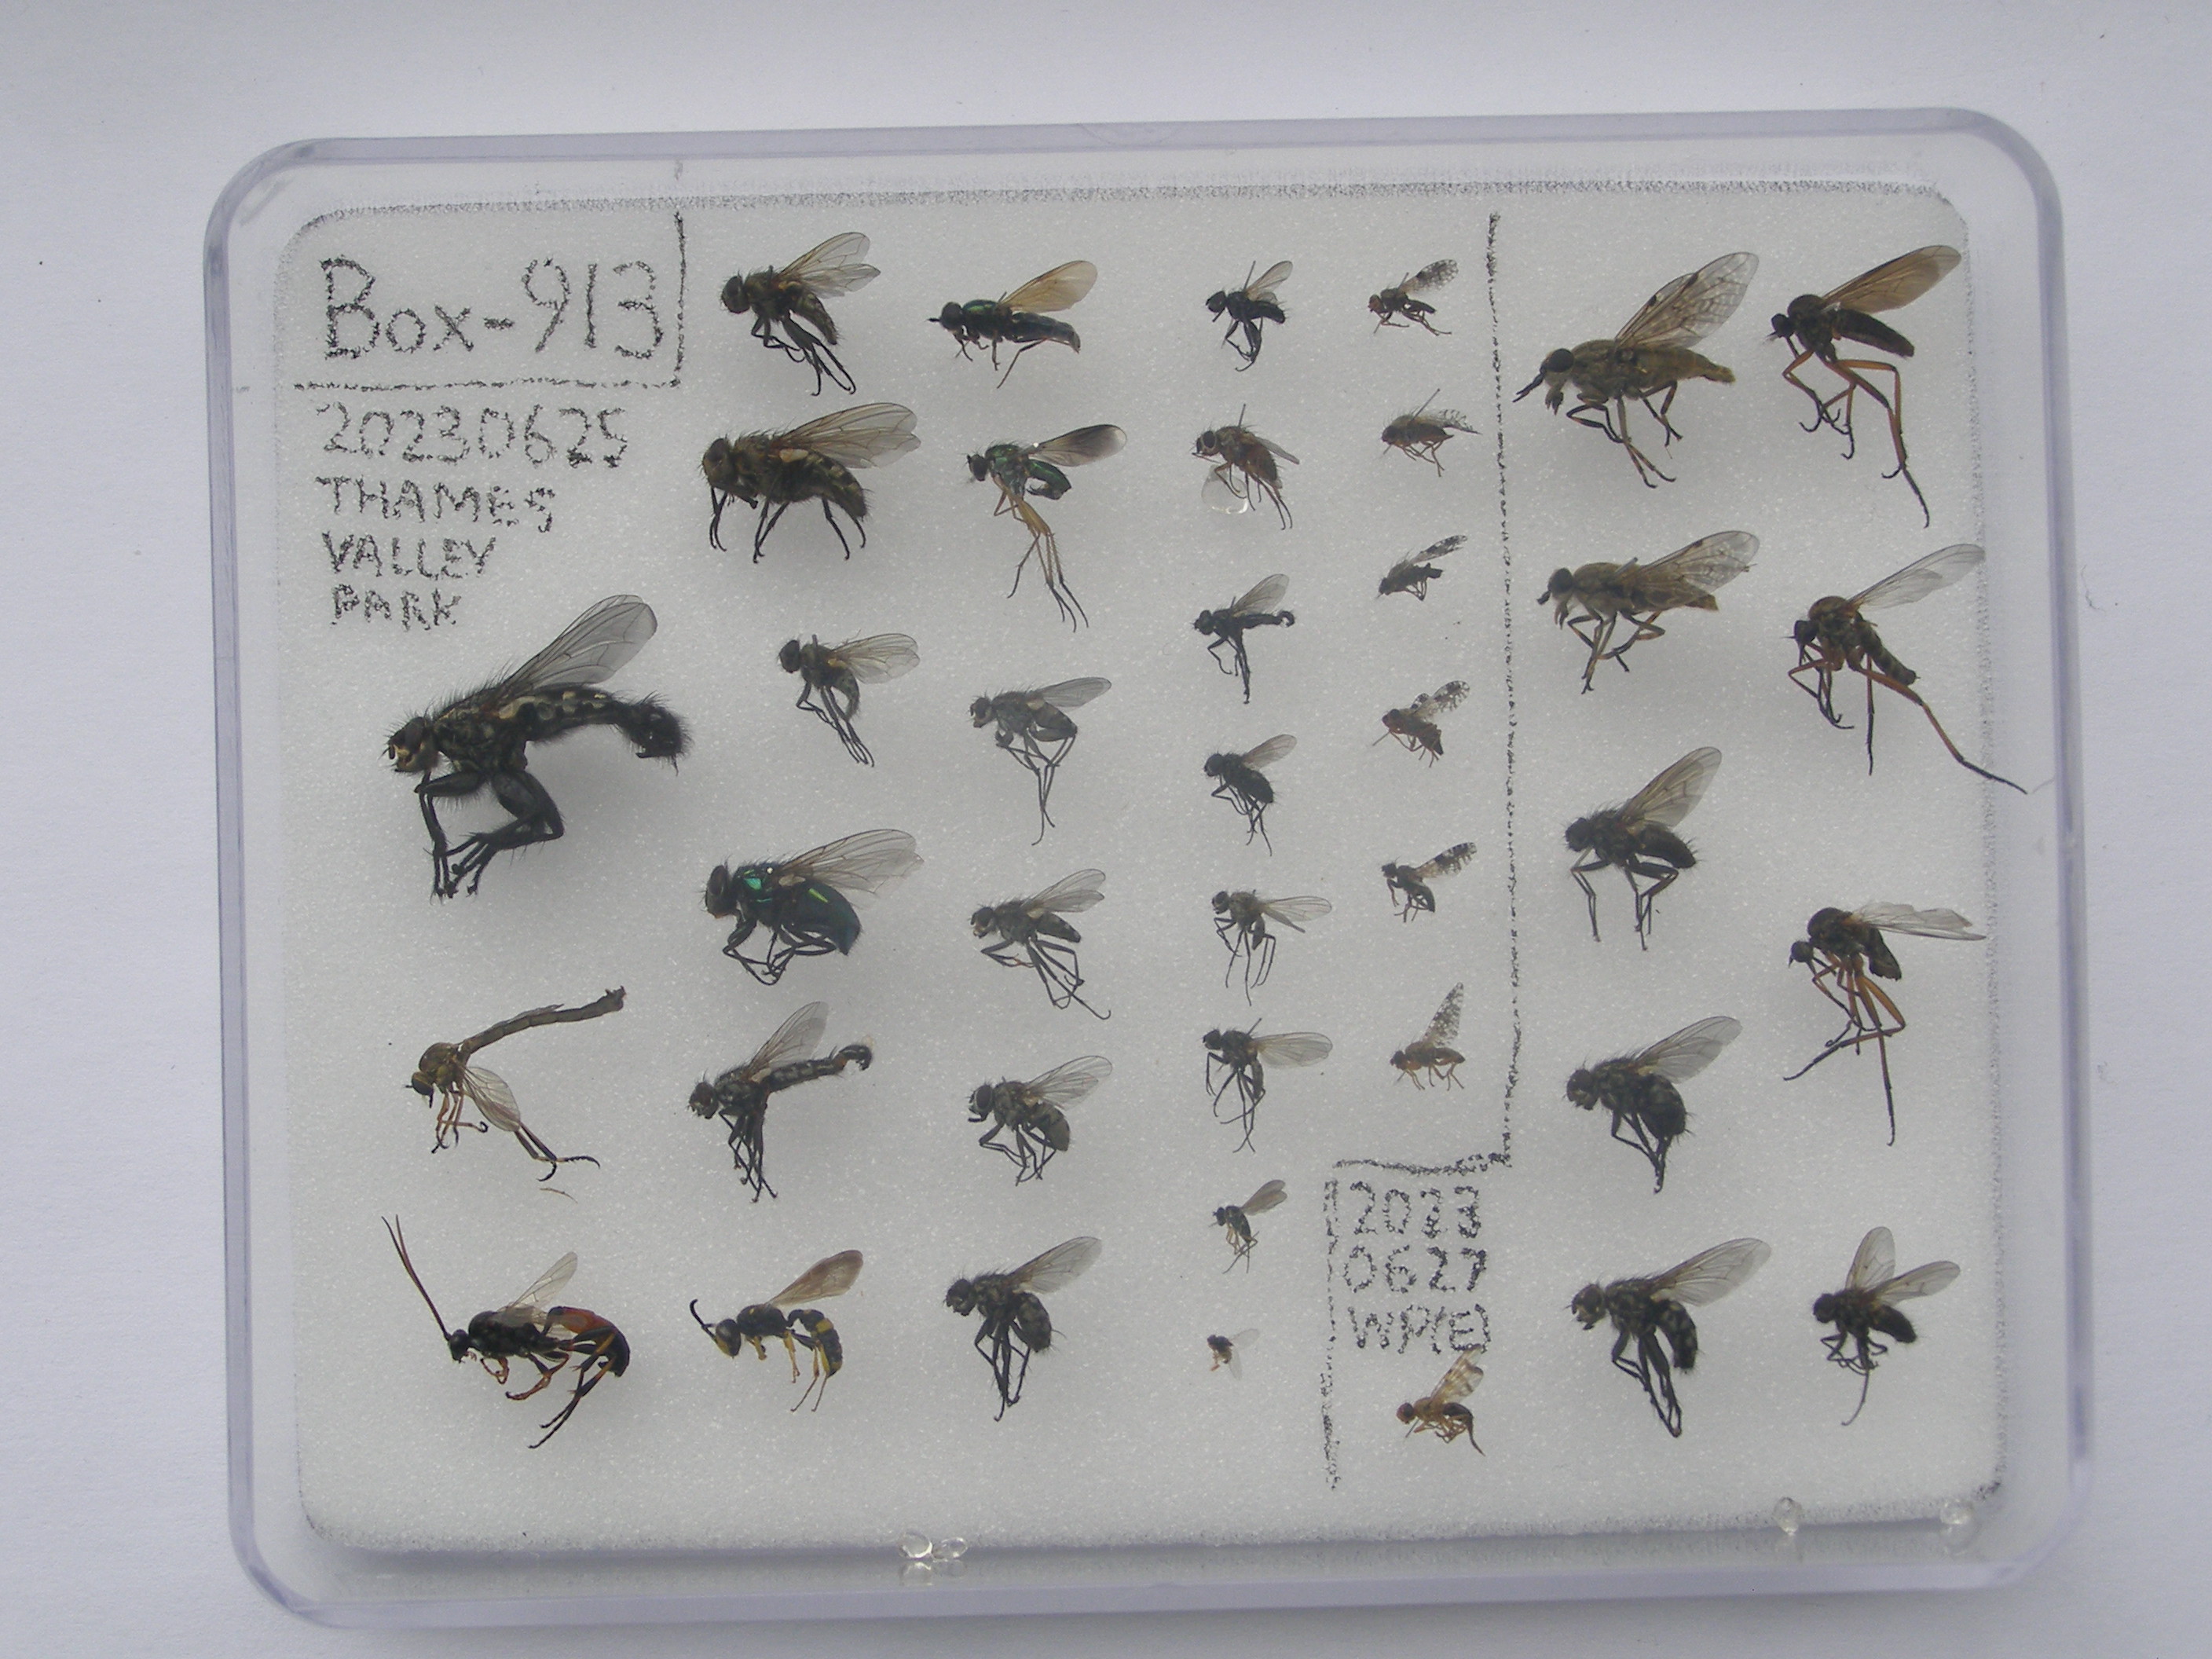 Box-913
20230625
THAMES
VALLEY
PARK
2023
0627